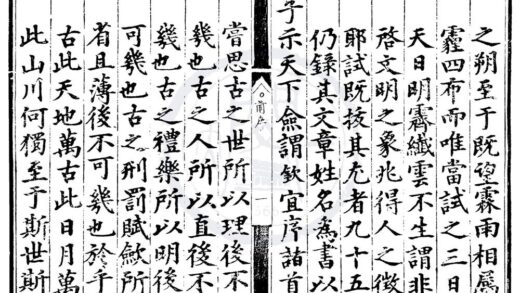 之朔至于既望霖雨相屬
霾四布而唯當試之三日
天日明霽纖雲不生謂非
啓文明之象兆得人之徵
耶試既拔其尤者九十五
仍錄其文章姓名爲書以
子示天下僉謂欽宜序諸首
前序
一
嘗思古之世所以理後不
幾也古之人所以直後不
幾也古之禮樂所以明後
可幾也古之刑罰賦歛所
省且薄後不可幾也於乎
古此天地萬古此日月萬
此山川何獨至于斯世斯